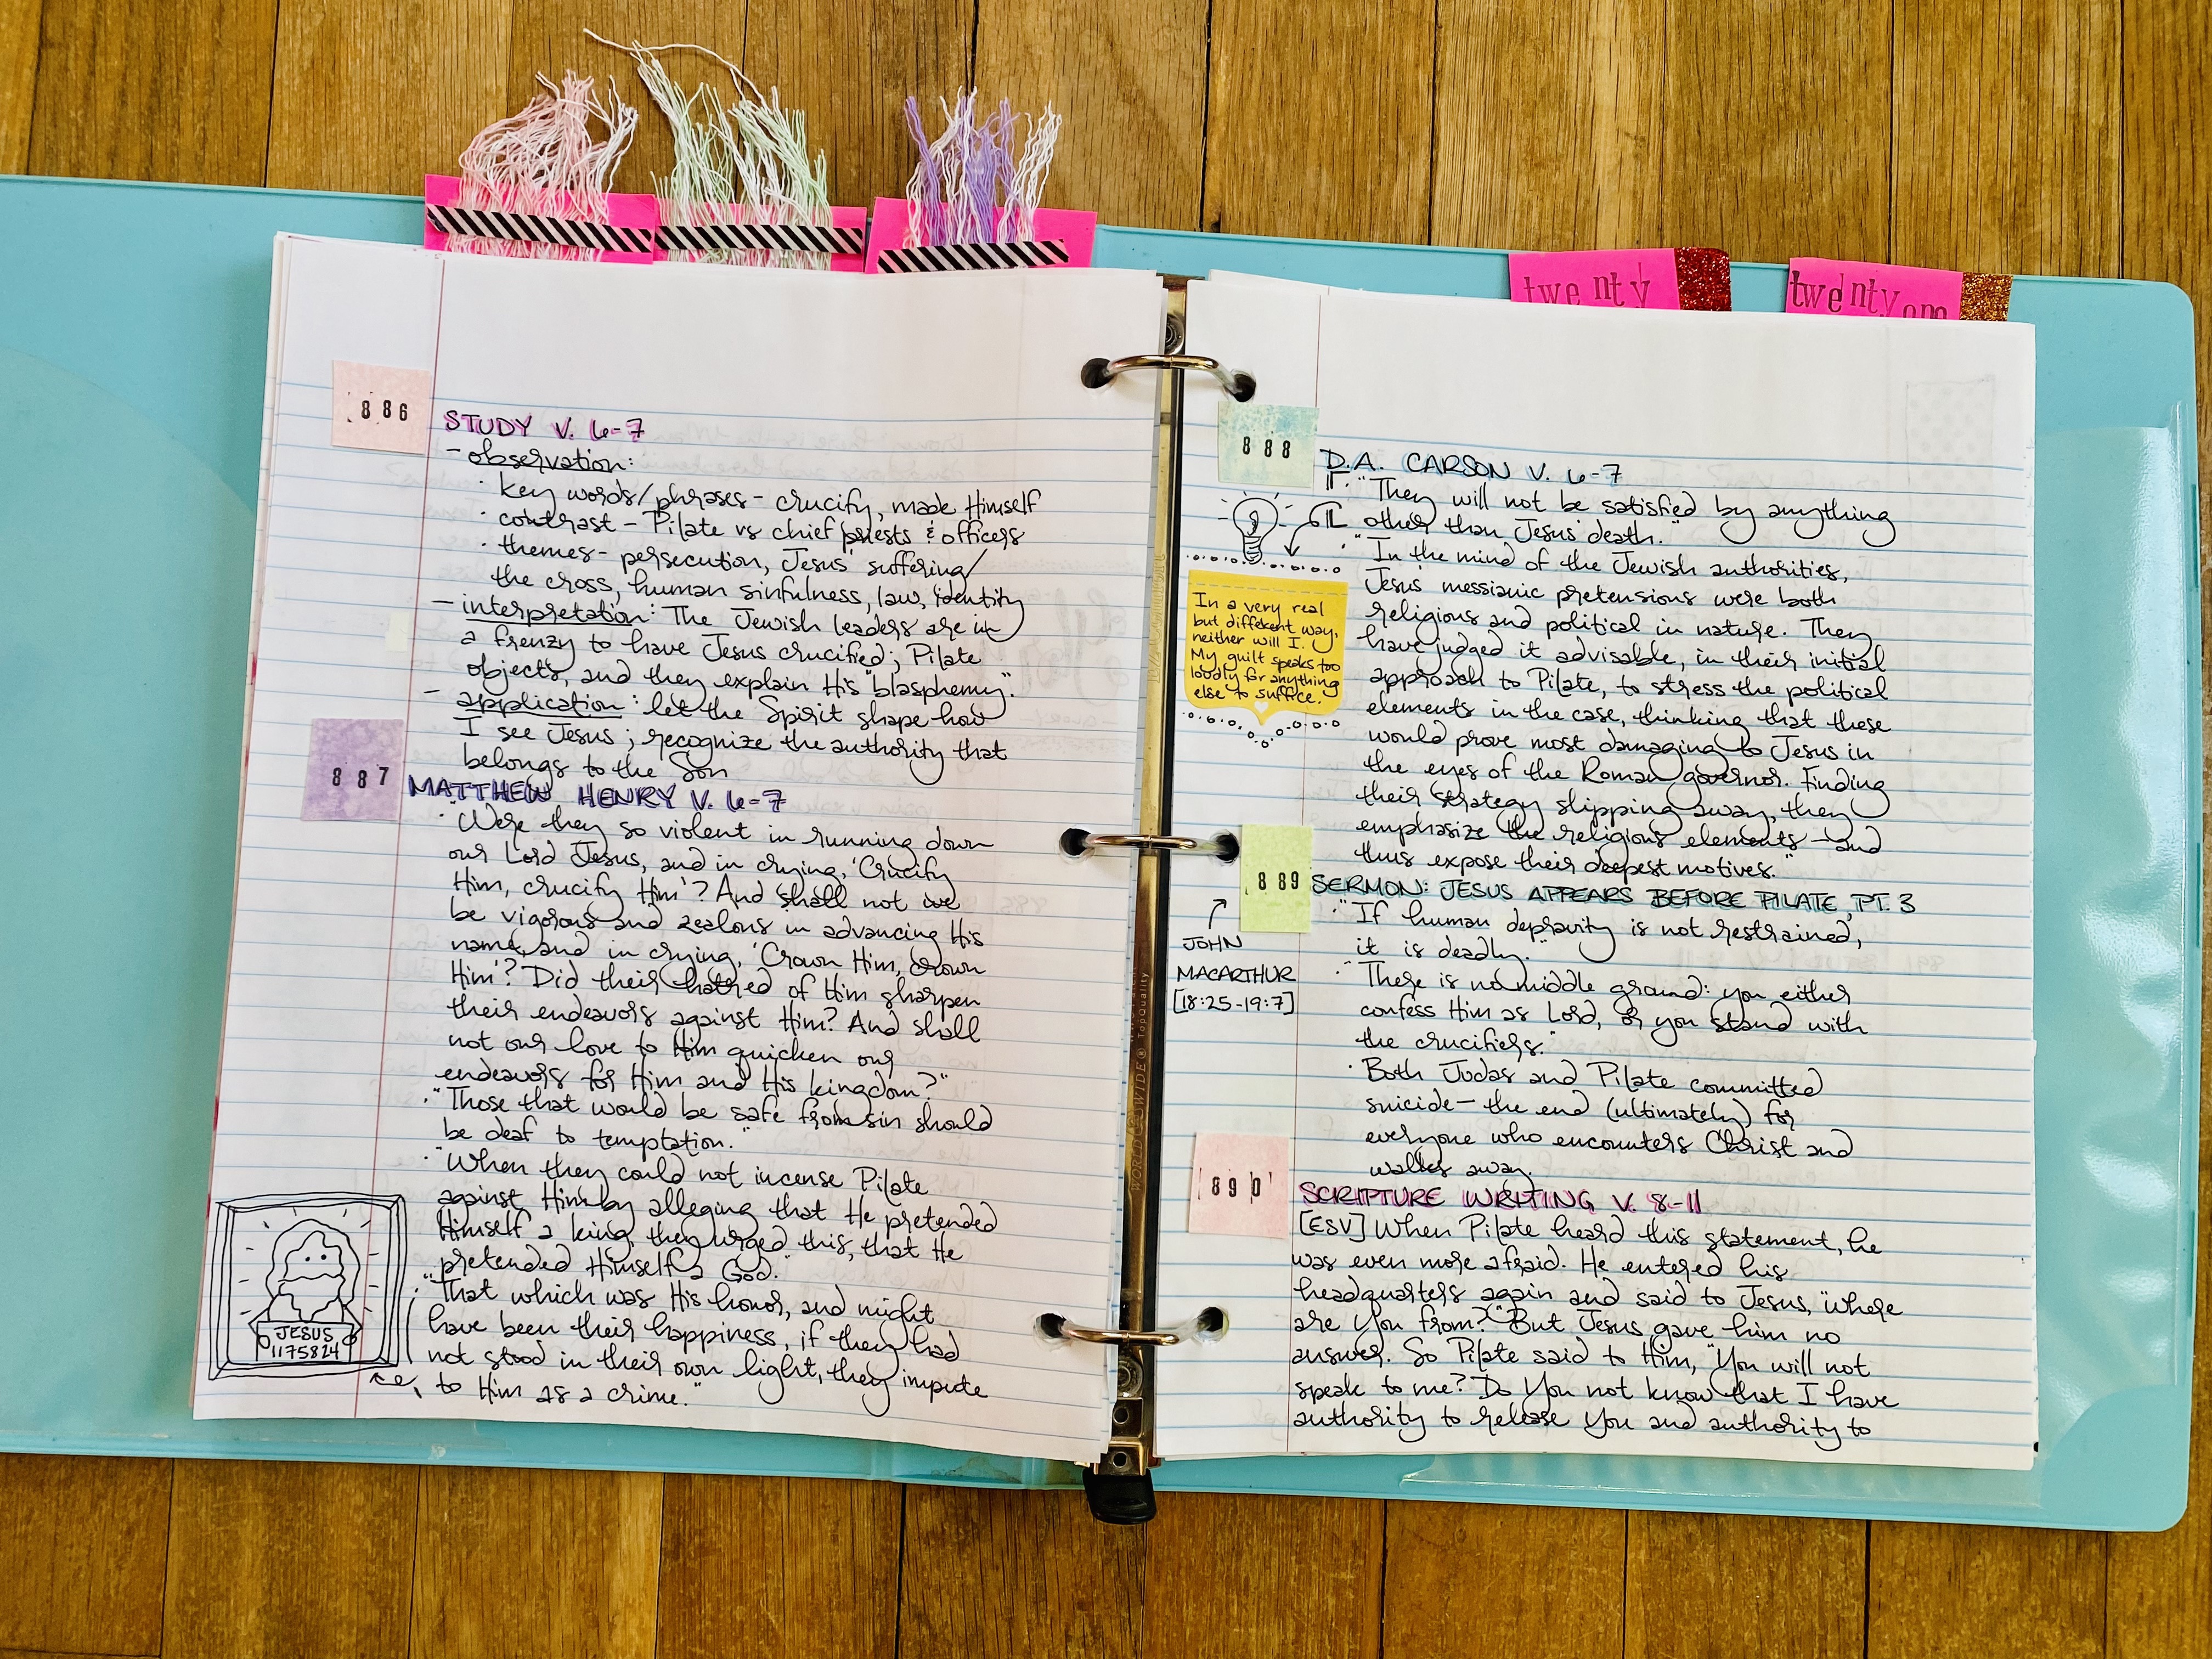 886
STUDY V. 6-7
- observation:
· key words/phrases - crucify, made Himself
· contrast - Pilate vs chief priests & officers
· themes - persecution, Jesus' suffering/
the cross, human sinfulness, law, identity
- interpretation: The Jewish leaders are in
a frenzy to have Jesus crucified; Pilate
objects, and they explain His "blasphemy".
- application: let the Spirit shape how
I see Jesus; recognize the authority that
belongs to the Son
887
MATTHEW HENRY V. 6-7
· "Were they so violent in running down
our Lord Jesus, and in crying, 'Crucify
Him, crucify Him'? And shall not we
be vigorous and zealous in advancing His
name, and in crying, 'Crown Him, crown
Him'? Did their hatred of Him sharpen
their endeavors against Him? And shall
not our love to Him quicken our
endeavors for Him and His kingdom?"
· "Those that would be safe from sin should
be deaf to temptation."
· "When they could not incense Pilate
against Him by alleging that He pretended
Himself a king, they urged this, that He
pretended Himself a God."
· "That which was His honor, and might
have been their happiness, if they had
not stood in their own light, they impute
to Him as a crime."
JESUS
1175824
twenty
twentyone
888
D.A. CARSON V. 6-7
· "They will not be satisfied by anything
other than Jesus' death."
· "In the mind of the Jewish authorities,
Jesus' messianic pretensions were both
religious and political in nature. They
have judged it advisable, in their initial
approach to Pilate, to stress the political
elements in the case, thinking that these
would prove most damaging to Jesus in
the eyes of the Roman governor. Finding
their strategy slipping away, they
emphasize the religious elements - and
thus expose their deepest motives."
In a very real
but different way,
neither will I.
My guilt speaks too
loudly for anything
else to suffice.
889
SERMON: JESUS APPEARS BEFORE PILATE, PT. 3
JOHN
MACARTHUR
[18:25-19:7]
· "If human depravity is not restrained,
it is deadly."
· "There is no middle ground: you either
confess Him as Lord, or you stand with
the crucifiers."
· Both Judas and Pilate committed
suicide - the end (ultimately) for
everyone who encounters Christ and
walks away.
890
SCRIPTURE WRITING V. 8-11
[ESV] When Pilate heard this statement, he
was even more afraid. He entered his
headquarters again and said to Jesus, "Where
are You from?" But Jesus gave him no
answer. So Pilate said to Him, "You will not
speak to me? Do You not know that I have
authority to release You and authority to